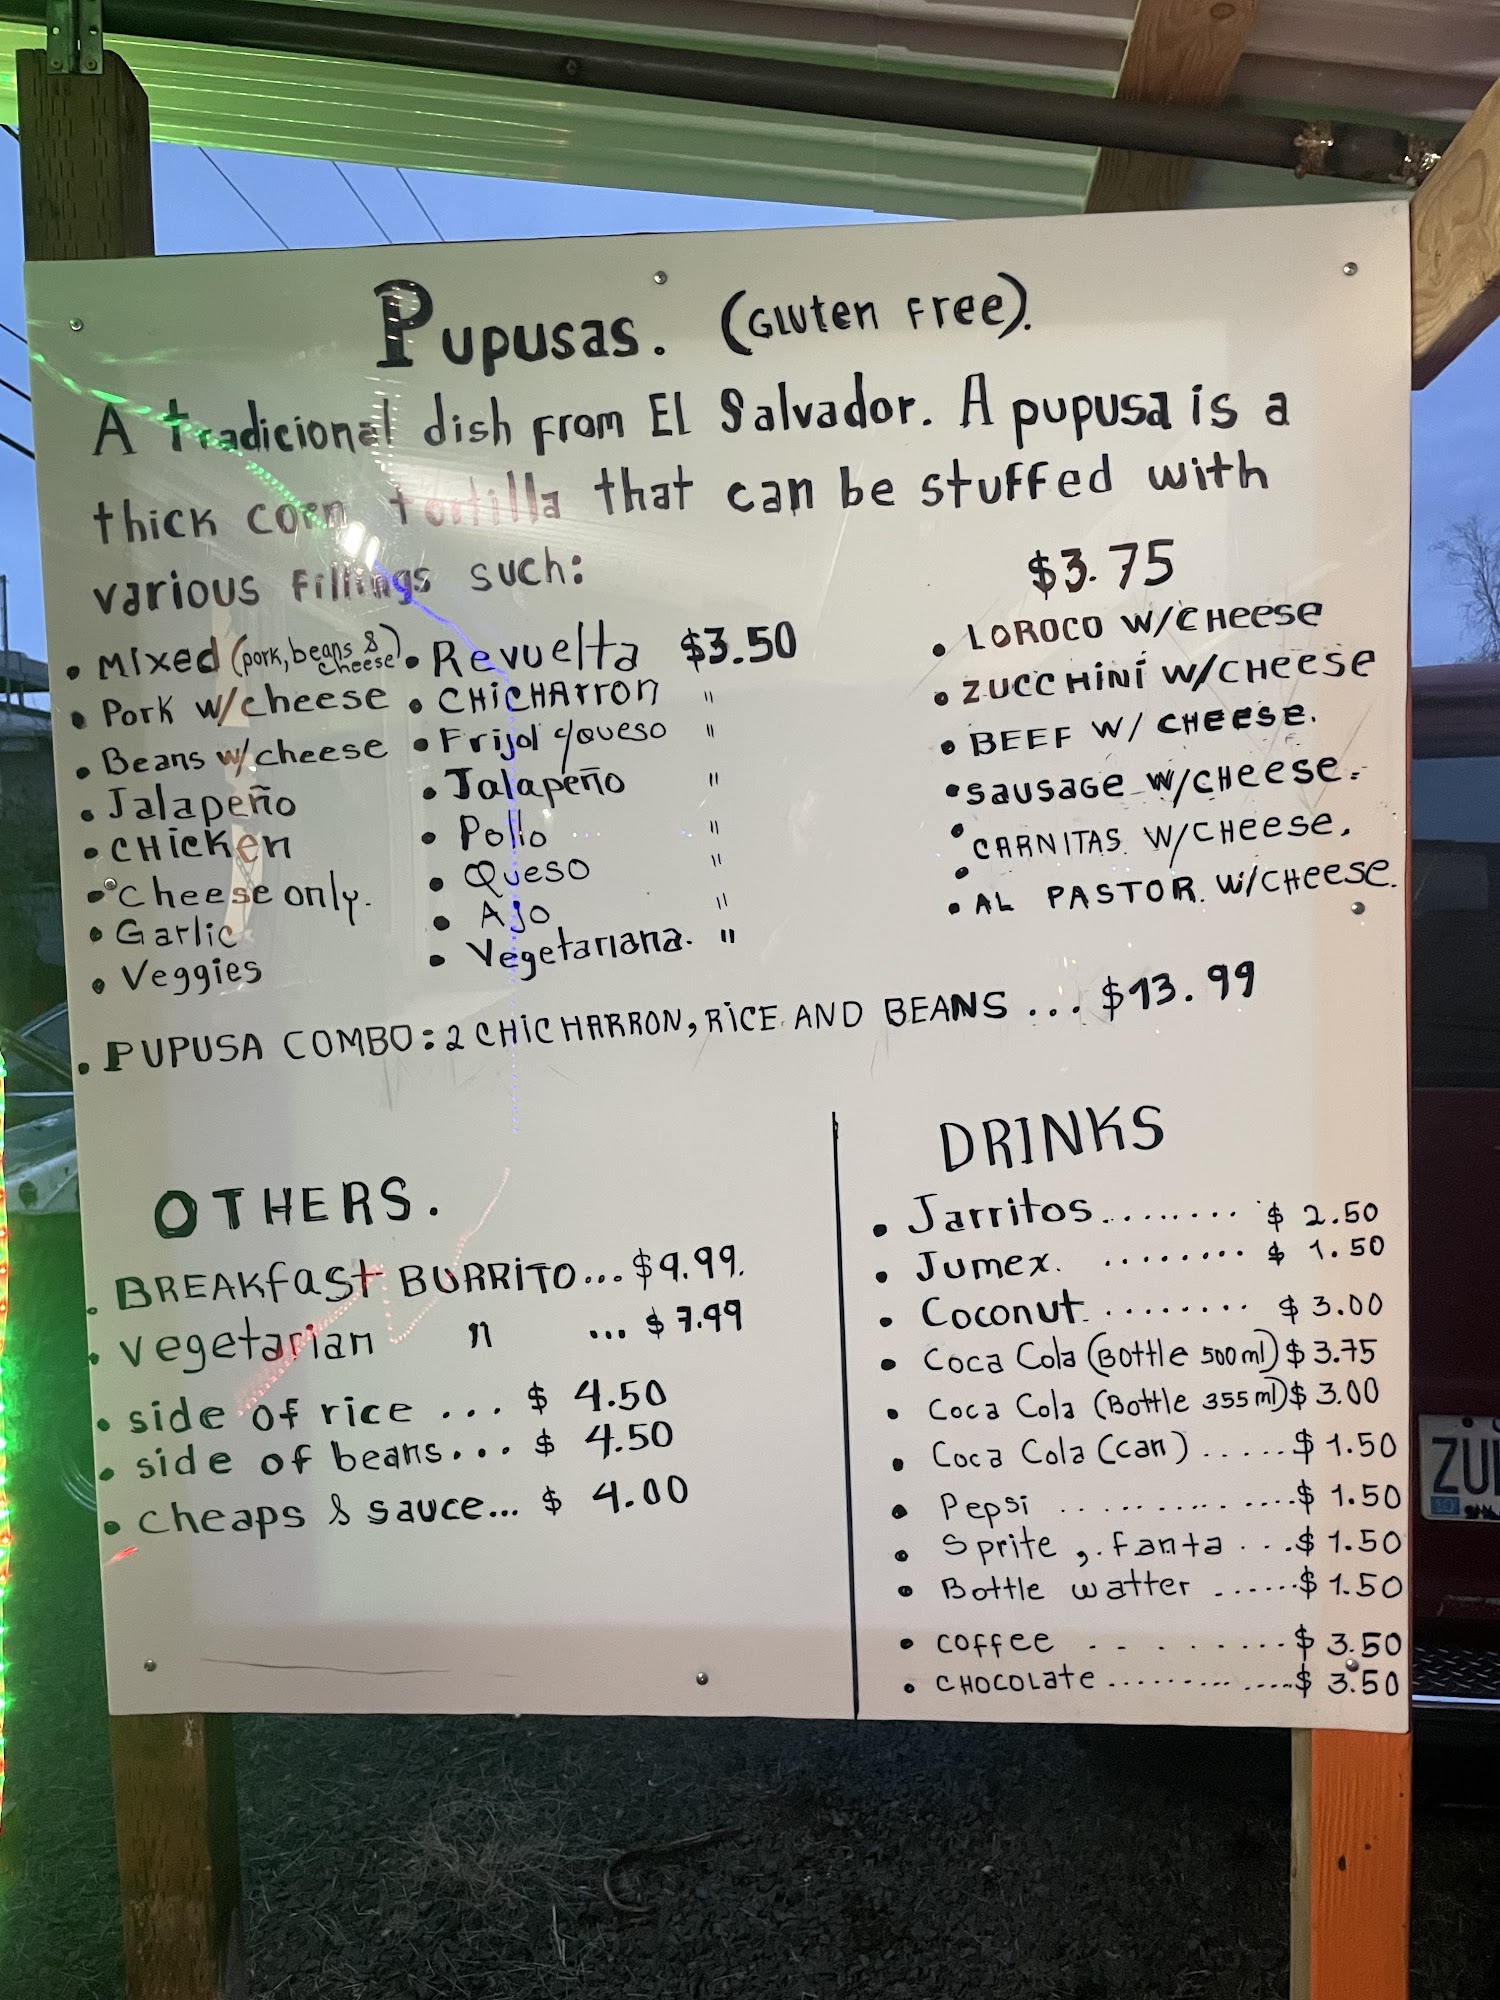 Pupusas. (Gluten Free).
A tradicional dish from El Salvador. A pupusa is a
thick corn tortilla that can be stuffed with
various fillings such:
• Mixed (pork, beans & cheese)
• Pork w/cheese
• Beans w/cheese
• Jalapeño
• CHicken
• Cheese only.
• Garlic
• Veggies
• Revuelta $3.50
• CHiCHArron "
• Frijol c/queso "
• Jalapeño "
• Pollo "
• Queso "
• Ajo "
• Vegetariana. "
$3.75
• LOROCO W/CHeese
• ZUCCHiNí W/CHeese
• BEEF W/ CHEESE.
• Sausage W/CHeese.
• CARNITAS W/CHeese.
• AL PASTOR. W/CHeese.
• PUPUSA COMBO: 2 CHiCHARRON, RiCE AND BEANS ... $13.99
OTHERS.
• BREAKfast BURRiTO... $9.99.
• vegetarian " ... $7.99
• side of rice ... $ 4.50
• side of beans... $ 4.50
• cheaps & sauce... $ 4.00
DRINKS
• Jarritos........ $ 2.50
• Jumex. ........ $ 1.50
• Coconut ........ $ 3.00
• Coca Cola (Bottle 500ml) $3.75
• Coca Cola (Bottle 355ml) $3.00
• Coca Cola (can) ..... $1.50
• Pepsi .............. $1.50
• Sprite, fanta ... $1.50
• Bottle watter ...... $1.50
• coffee ......... $3.50
• CHOCOLate .............. $3.50